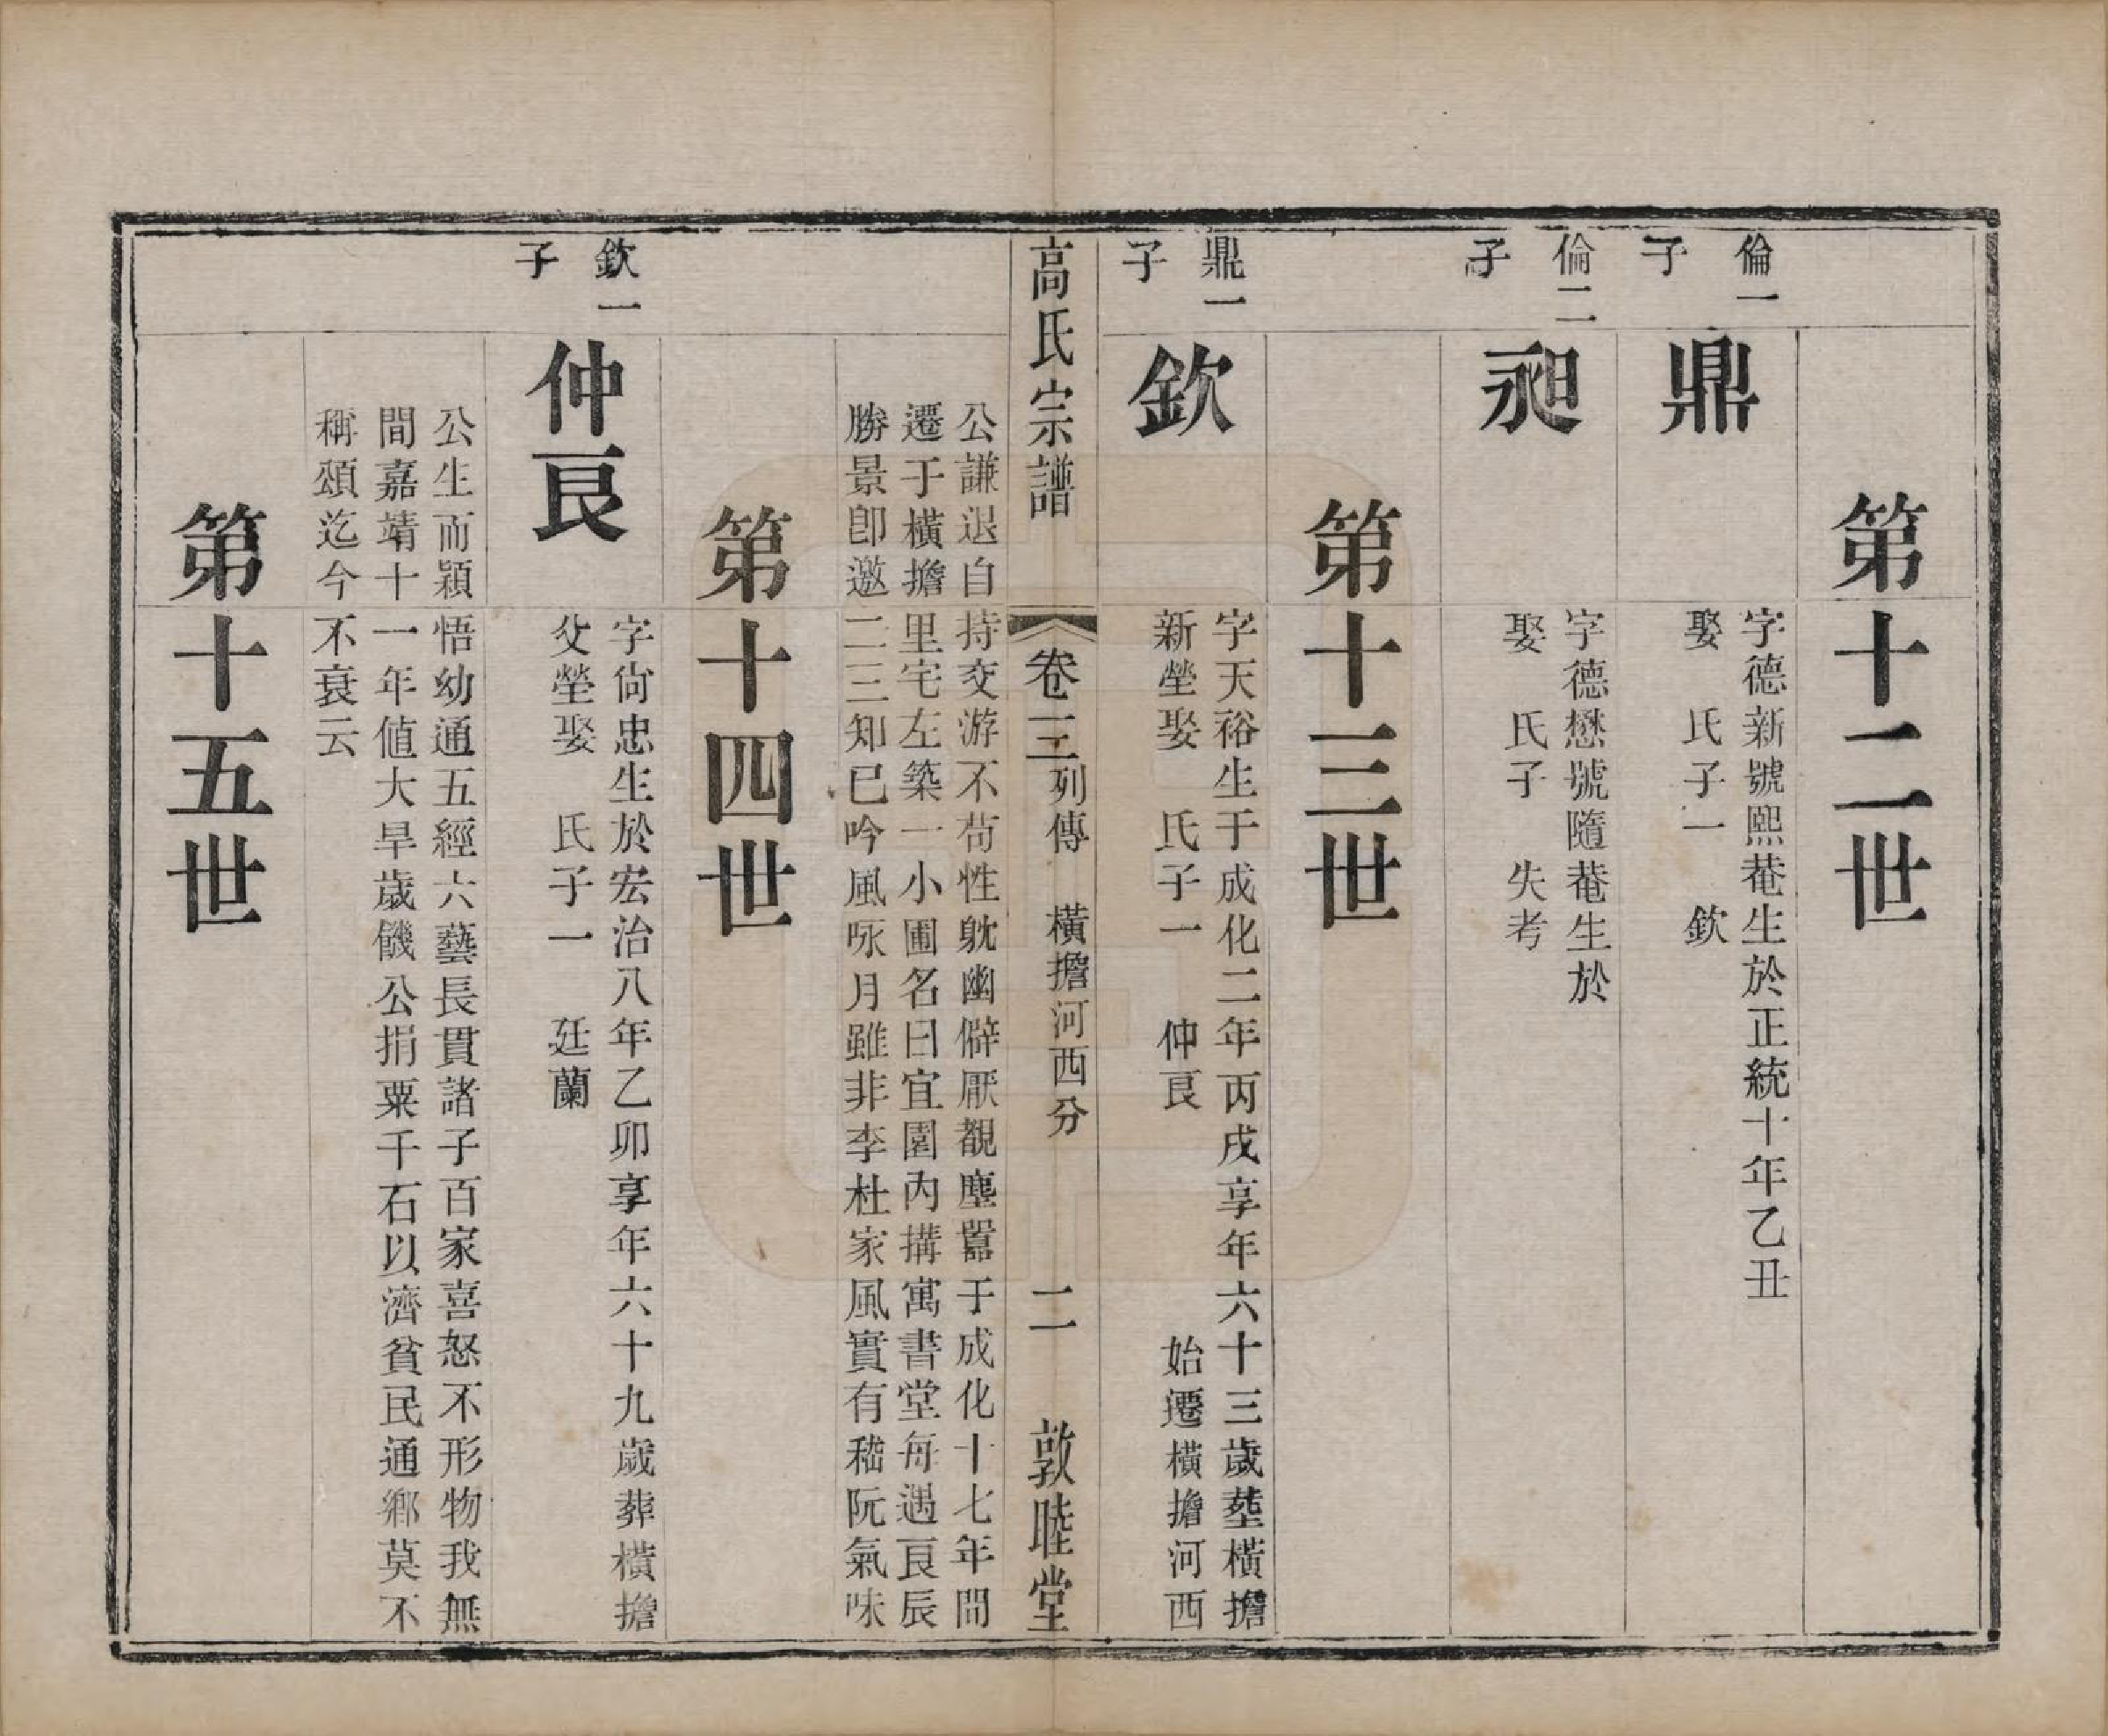 第十二世
倫一
子
鼎
字德新號熙菴生於正統十年乙丑
娶　氏子一　欽
倫二
子
昶
字德懋號隨菴生於
娶　氏子　失考
第十三世
鼎一
子
欽
字天裕生于成化二年丙戌享年六十三歲塟橫擔
新塋娶　氏子一　仲良　始遷橫擔河西
高氏宗譜　卷三　列傳　橫擔河西分　二　敦睦堂
公謙退自持交游不苟性躭幽僻厭覩塵囂于成化十七年間
遷于橫擔里宅左築一小圃名曰宜園內搆寓書堂每遇良辰
勝景卽邀二三知已吟風咏月雖非李杜家風實有嵇阮氣味
第十四世
欽一
子
仲良
字尙忠生於宏治八年乙卯享年六十九歲葬橫擔
父塋娶　氏子一　廷蘭
公生而穎悟幼通五經六藝長貫諸子百家喜怒不形物我無
間嘉靖十一年値大旱歲饑公捐粟千石以濟貧民通鄉莫不
稱頌迄今不衰云
第十五世